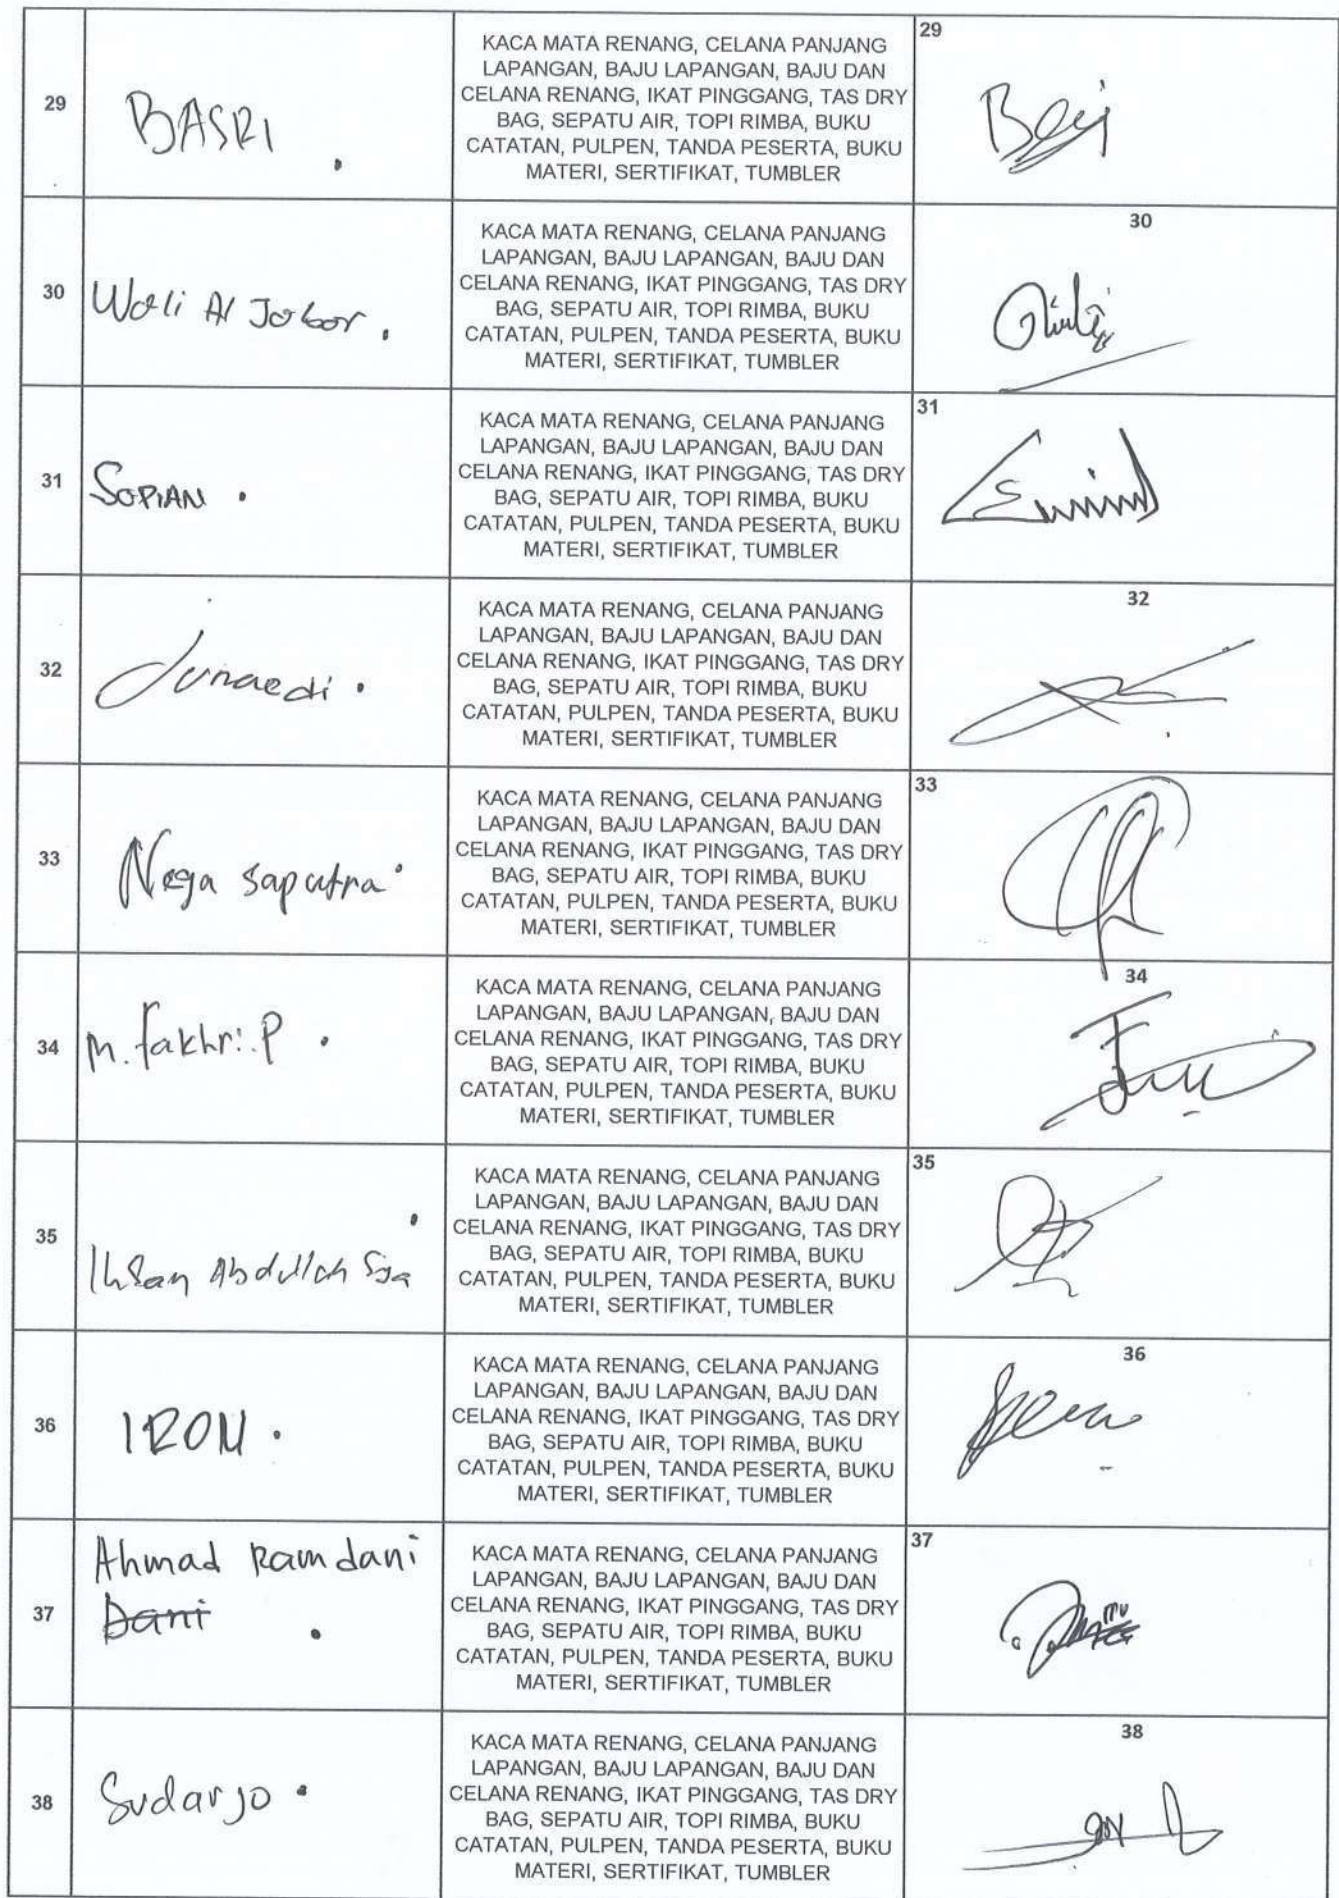 29
BASRI .
KACA MATA RENANG, CELANA PANJANG
LAPANGAN, BAJU LAPANGAN, BAJU DAN
CELANA RENANG, IKAT PINGGANG, TAS DRY
BAG, SEPATU AIR, TOPI RIMBA, BUKU
CATATAN, PULPEN, TANDA PESERTA, BUKU
MATERI, SERTIFIKAT, TUMBLER
29
30
Wali Al Jabar .
KACA MATA RENANG, CELANA PANJANG
LAPANGAN, BAJU LAPANGAN, BAJU DAN
CELANA RENANG, IKAT PINGGANG, TAS DRY
BAG, SEPATU AIR, TOPI RIMBA, BUKU
CATATAN, PULPEN, TANDA PESERTA, BUKU
MATERI, SERTIFIKAT, TUMBLER
30
31
SOPIAN .
KACA MATA RENANG, CELANA PANJANG
LAPANGAN, BAJU LAPANGAN, BAJU DAN
CELANA RENANG, IKAT PINGGANG, TAS DRY
BAG, SEPATU AIR, TOPI RIMBA, BUKU
CATATAN, PULPEN, TANDA PESERTA, BUKU
MATERI, SERTIFIKAT, TUMBLER
31
32
Junaedi .
KACA MATA RENANG, CELANA PANJANG
LAPANGAN, BAJU LAPANGAN, BAJU DAN
CELANA RENANG, IKAT PINGGANG, TAS DRY
BAG, SEPATU AIR, TOPI RIMBA, BUKU
CATATAN, PULPEN, TANDA PESERTA, BUKU
MATERI, SERTIFIKAT, TUMBLER
32
33
Nega saputra .
KACA MATA RENANG, CELANA PANJANG
LAPANGAN, BAJU LAPANGAN, BAJU DAN
CELANA RENANG, IKAT PINGGANG, TAS DRY
BAG, SEPATU AIR, TOPI RIMBA, BUKU
CATATAN, PULPEN, TANDA PESERTA, BUKU
MATERI, SERTIFIKAT, TUMBLER
33
34
M. fakhri. P .
KACA MATA RENANG, CELANA PANJANG
LAPANGAN, BAJU LAPANGAN, BAJU DAN
CELANA RENANG, IKAT PINGGANG, TAS DRY
BAG, SEPATU AIR, TOPI RIMBA, BUKU
CATATAN, PULPEN, TANDA PESERTA, BUKU
MATERI, SERTIFIKAT, TUMBLER
34
35
Ihsan Abdullah
KACA MATA RENANG, CELANA PANJANG
LAPANGAN, BAJU LAPANGAN, BAJU DAN
CELANA RENANG, IKAT PINGGANG, TAS DRY
BAG, SEPATU AIR, TOPI RIMBA, BUKU
CATATAN, PULPEN, TANDA PESERTA, BUKU
MATERI, SERTIFIKAT, TUMBLER
35
36
IRON .
KACA MATA RENANG, CELANA PANJANG
LAPANGAN, BAJU LAPANGAN, BAJU DAN
CELANA RENANG, IKAT PINGGANG, TAS DRY
BAG, SEPATU AIR, TOPI RIMBA, BUKU
CATATAN, PULPEN, TANDA PESERTA, BUKU
MATERI, SERTIFIKAT, TUMBLER
36
37
Ahmad Ramdani
Dani .
KACA MATA RENANG, CELANA PANJANG
LAPANGAN, BAJU LAPANGAN, BAJU DAN
CELANA RENANG, IKAT PINGGANG, TAS DRY
BAG, SEPATU AIR, TOPI RIMBA, BUKU
CATATAN, PULPEN, TANDA PESERTA, BUKU
MATERI, SERTIFIKAT, TUMBLER
37
38
Sudarjo .
KACA MATA RENANG, CELANA PANJANG
LAPANGAN, BAJU LAPANGAN, BAJU DAN
CELANA RENANG, IKAT PINGGANG, TAS DRY
BAG, SEPATU AIR, TOPI RIMBA, BUKU
CATATAN, PULPEN, TANDA PESERTA, BUKU
MATERI, SERTIFIKAT, TUMBLER
38